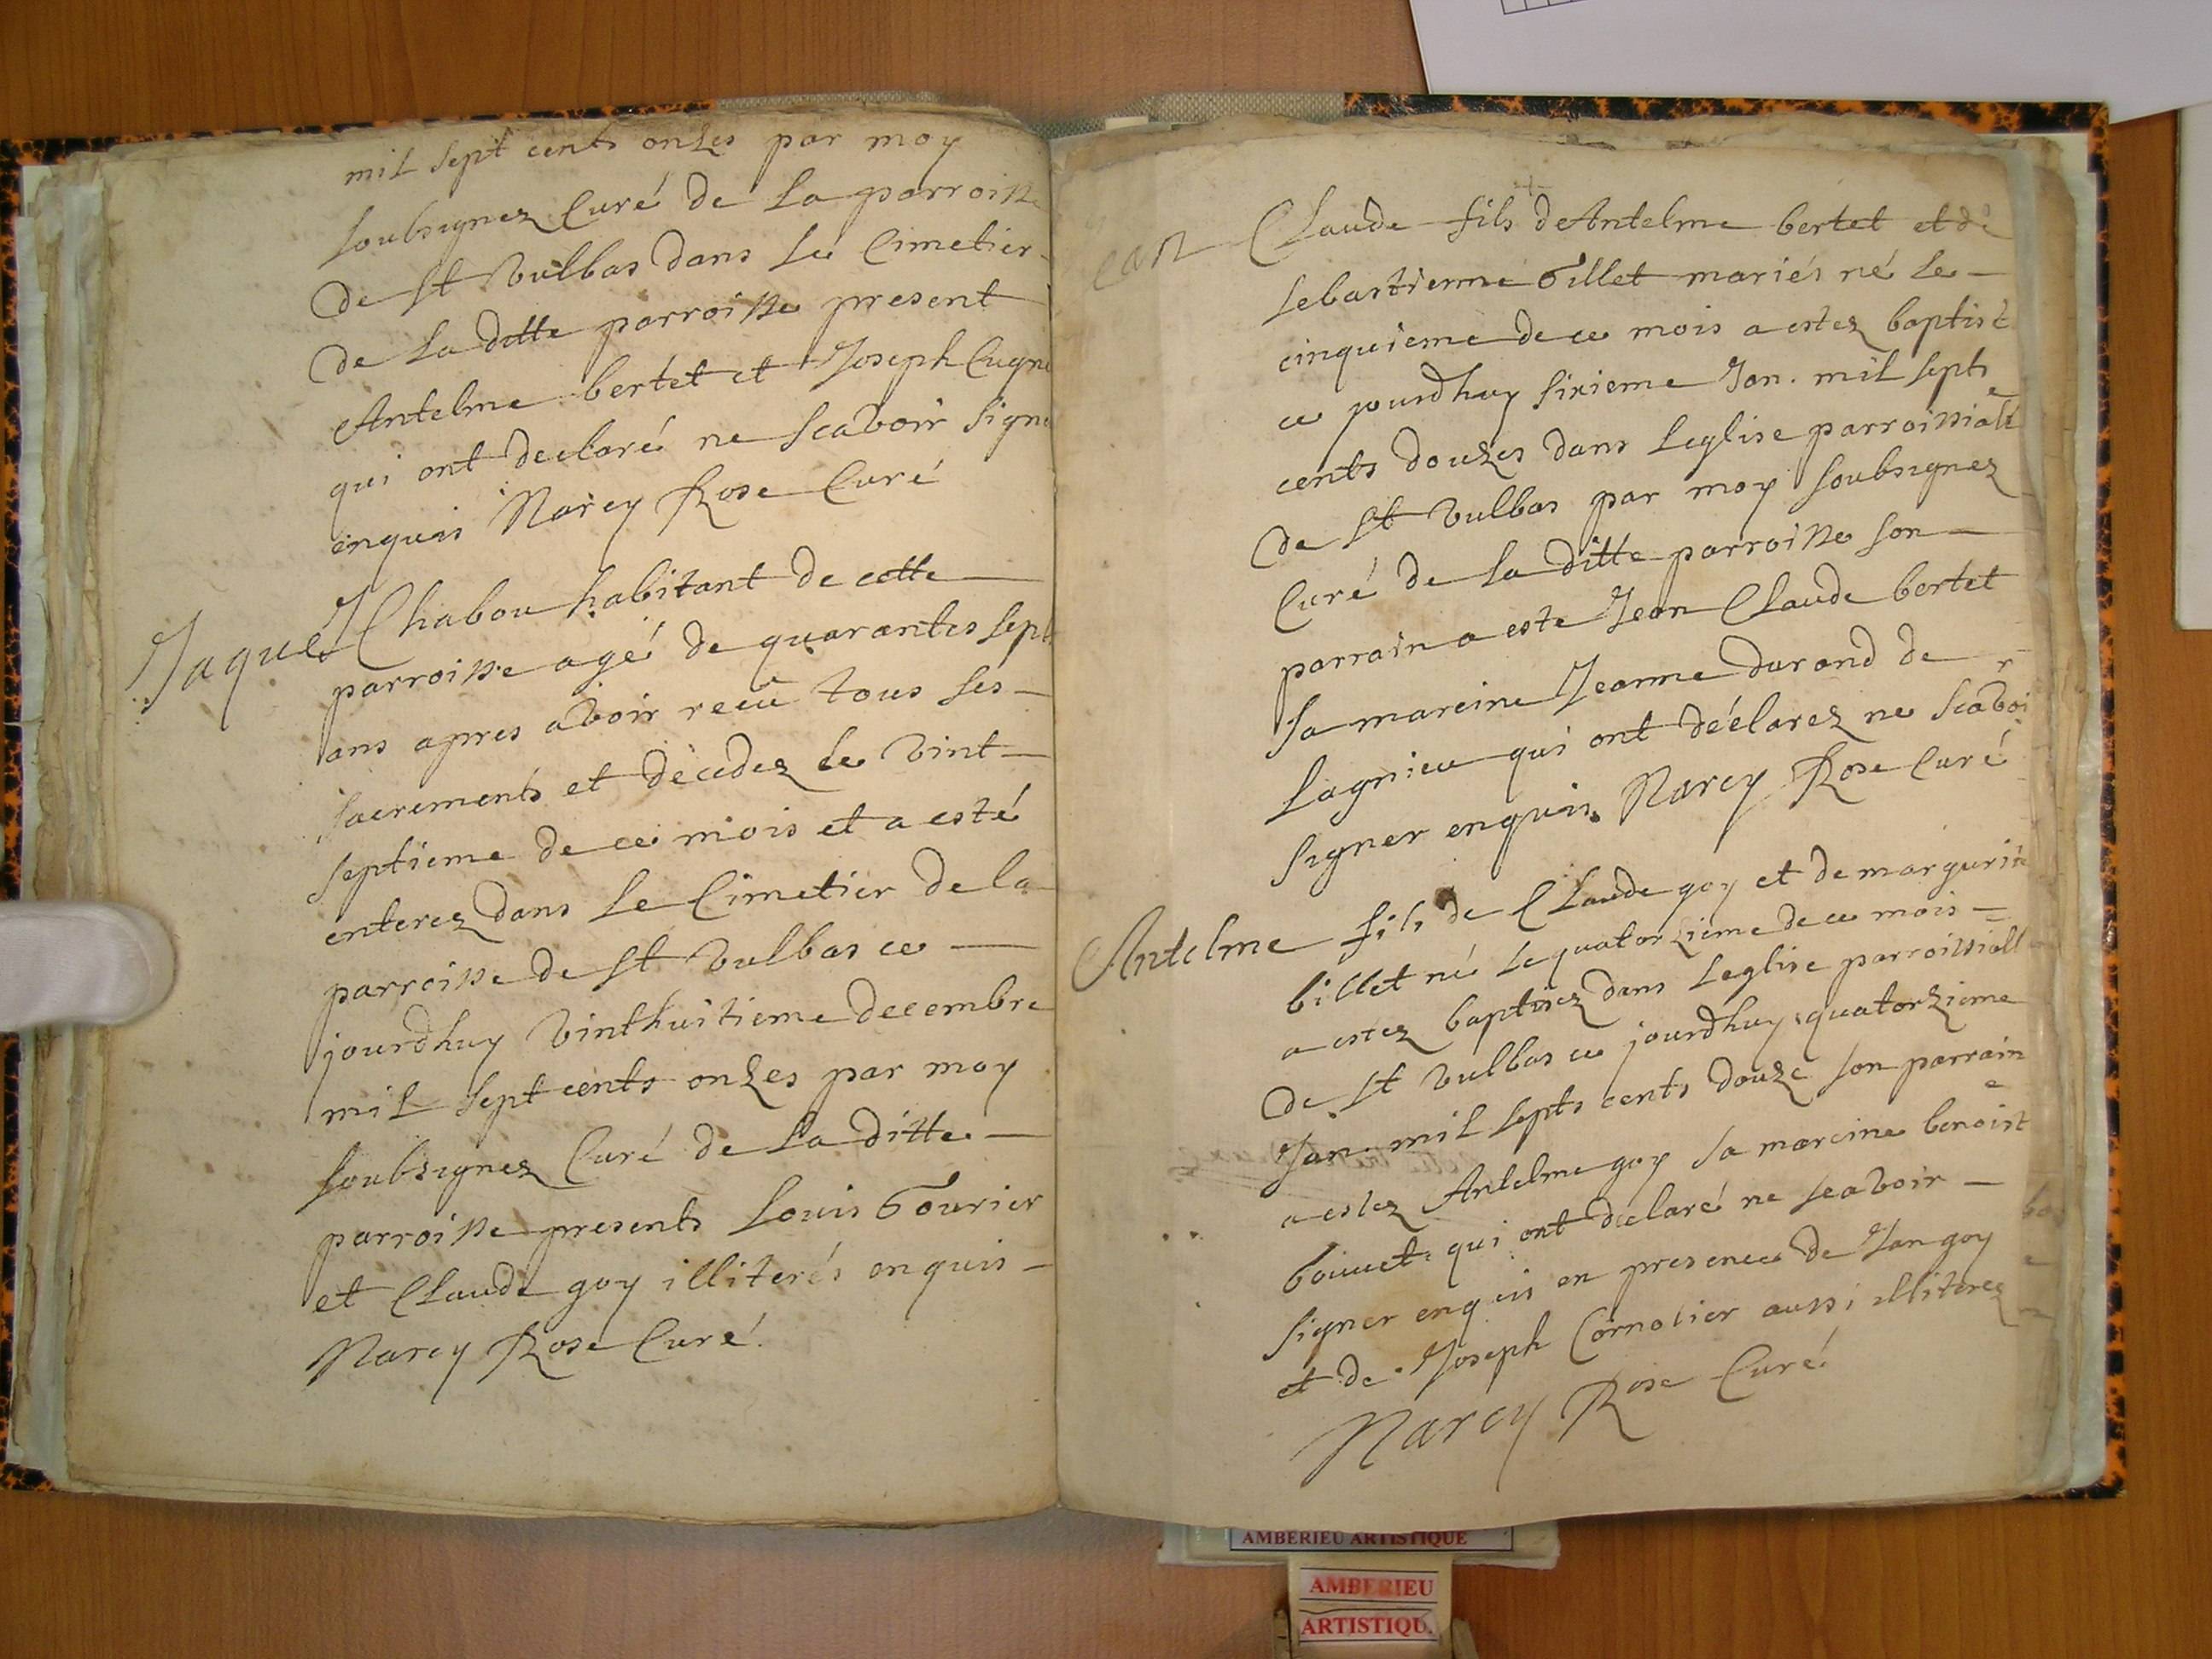 mil sept cents onzes par moy
soubsignez Curé de la parroisse
de st vulbas dans le Cimetier
de la ditte parroisse present
Antelme bertet et Joseph Cugn
qui ont declaré ne scavoir signe
enquis Narcy Rose Curé
Jaques Chabou habitant de cette
parroisse agé de quarantes sept
ans apres avoir recu tous ses
sacrements et décédez le vint
septieme de ce mois et a esté
enterez dans le Cimetier de la
parroisse de st vulbas ce
jourdhuy vinthuitieme decembre
mil sept cents onzes par moy
soubsignez Curé de la ditte
parroisse presents Louis Tourier
et Claude goy illiterés enquis
Narcy Rose Curé
ean Claude fils de Antelme bertet et de
sebastienne Tillet mariés né le
cinquieme de ce mois a estez baptisé
ce jourdhuy sixieme Jan. mil septs
cents douzes dans leglise parroissiale
de st vulbas par moy soubsignez
Curé de la ditte parroisse son
parrain a este Jean Claude bertet
sa mareine Jeanne durand de
Lagnieu qui ont déclarez ne scavoir
signer enquis Narcy Rose Curé
Antelme fils de Claude goy et de margurite
billet né le quatorzieme de ce mois
a estez baptisez dans leglise parroissiall
de st vulbas ce jourdhuy quatorzieme
Jan. mil septs cents douze son parrain
a estez Antelme goy sa mareine benoiste
bouuet qui ont declaré ne scavoir
signer enquis en presence de Jan goy
et de Joseph Cornolier aussi illiterez
Narcy Rose Curé
AMBERIEU ARTISTIQUE
AMBERIEU
ARTISTIQU